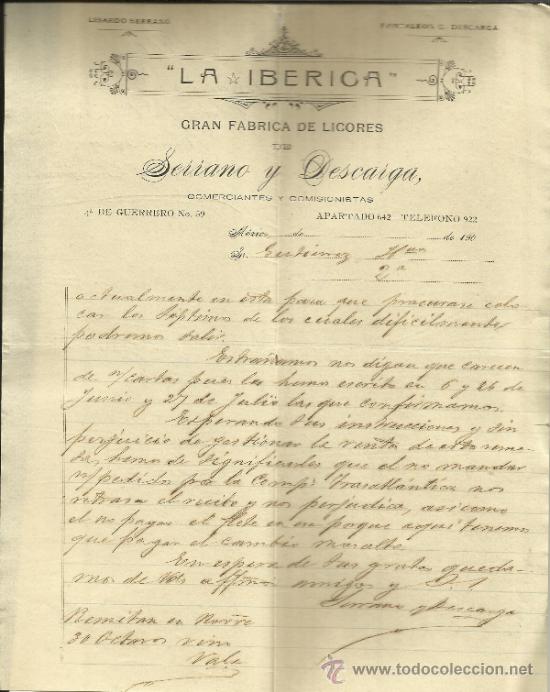 LISARDO SERRANO
PANTALEON G. DESCARGA
"LA IBERICA"
GRAN FABRICA DE LICORES
DE
Serrano y Descarga,
COMERCIANTES Y COMISIONISTAS
4ª DE GUERRERO No. 59
APARTADO 642 TELEFONO 922
México de de 190
Sr. Gutierrez Hnos
2ª
actualmente en esta para que procurase colo-
car los septimos de los cuales dificilmente
podremos salir.
Estrañamos nos digan que carecen
de n/cartas pues las hemos escrito en 6 y 26 de
Junio y 27 de Julio las que confirmamos.
Esperando sus instrucciones y sin
perjuicio de gestionar la venta de esta reme-
sa, hemos de significarles que el no mandar
n/pedido por la Compª Trasatlántica nos
retrasa el recibo y nos perjudica, asi como
el no pagar el flete en esa porque aqui tenemos
que pagar el cambio mas alto.
En espera de sus gratas queda-
mos de Vds affmos amigos y S.S.
Serrano y Descarga
Remitan en Novbre
30 Octavos vino
Vale
todocoleccion
www.todocoleccion.net